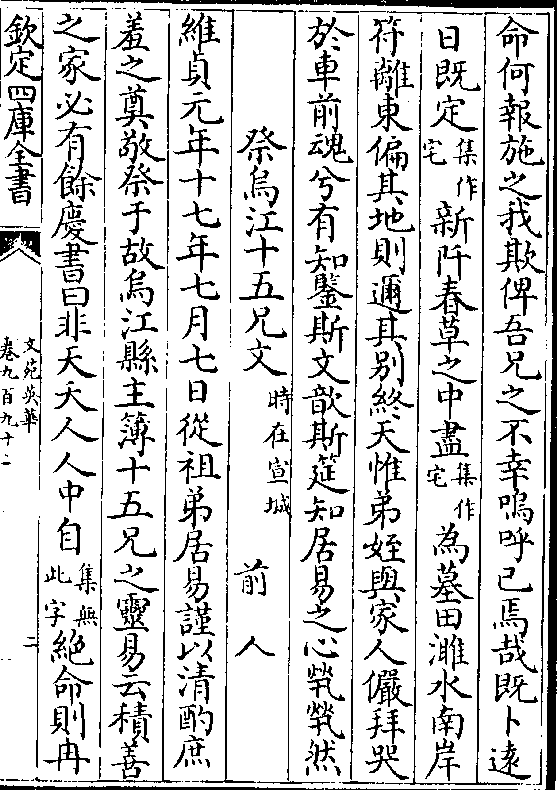 命何報施之我欺俾吾兄之不幸嗚呼已焉哉既卜遠
日既定集作宅新阡春草之中盡集作宅為墓田濉水南岸
符離東偏其地則邇其别終天惟弟姪與家人儼拜哭
於車前魂兮有知鑒斯文歆斯筵知居易之心煢煢然
祭烏江十五兄文時在宣城 前人
維貞元年十七年七月七日從祖弟居易謹以清酌庶
羞之奠敬祭于故烏江縣主簿十五兄之靈易云積善
之家必有餘慶書曰非天夭人人中自集無此字絶命則冉
欽定四庫全書
文苑英華
卷九百九十二
二